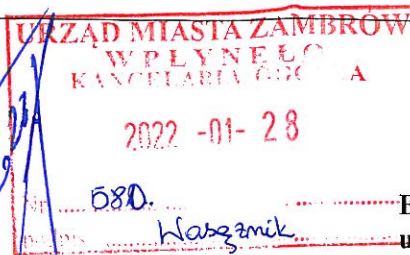 URZĄD MIASTA ZAMBRÓW
WPŁYNĘŁO
KANCELARIA OGÓLNA
2022 -01- 28
580.